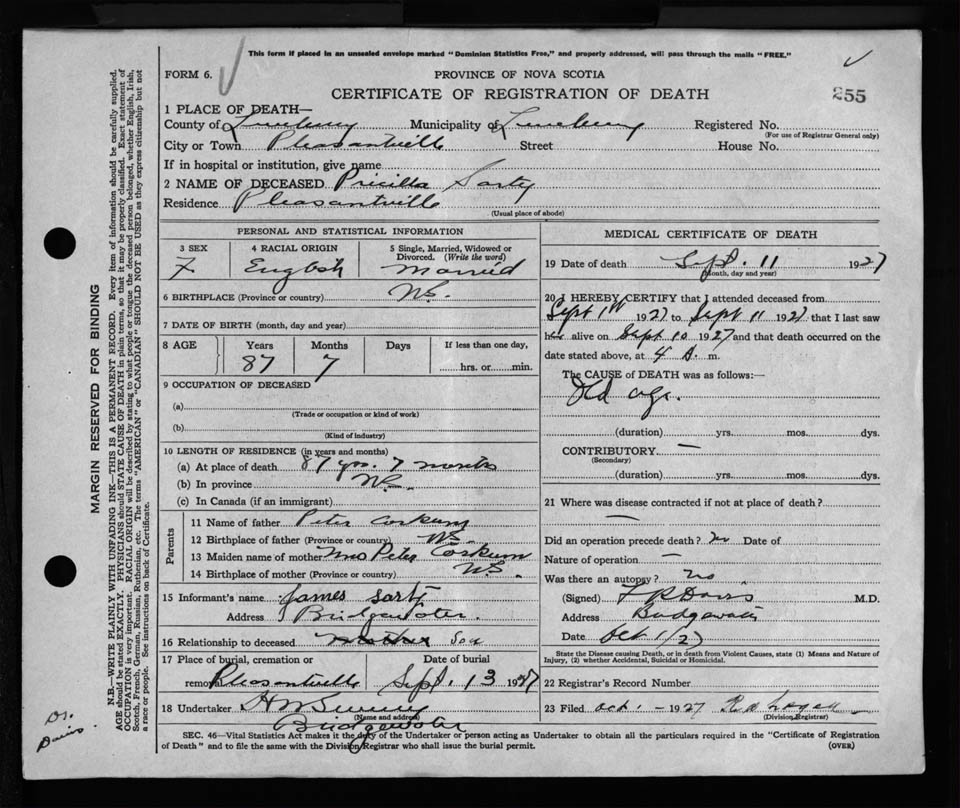 This form if placed in an unsealed envelope marked "Dominion Statistics Free," and properly addressed, will pass through the mails "FREE."
FORM 6.
PROVINCE OF NOVA SCOTIA
CERTIFICATE OF REGISTRATION OF DEATH
255
1 PLACE OF DEATH—
County of Lunenburg Municipality of Lunenburg Registered No.
(For use of Registrar General only)
City or Town Pleasantville Street House No.
If in hospital or institution, give name
2 NAME OF DECEASED Pricilla Sarty
Residence Pleasantville
(Usual place of abode)
PERSONAL AND STATISTICAL INFORMATION
3 SEX
F
4 RACIAL ORIGIN
English
5 Single, Married, Widowed or Divorced. (Write the word)
Married
6 BIRTHPLACE (Province or country) N.S.
7 DATE OF BIRTH (month, day and year)
8 AGE
Years
87
Months
7
Days
If less than one day,
hrs. or min.
9 OCCUPATION OF DECEASED
(a)
(Trade or occupation or kind of work)
(b)
(Kind of industry)
10 LENGTH OF RESIDENCE (in years and months)
(a) At place of death 87 yrs. 7 months
(b) In province N.S.
(c) In Canada (if an immigrant)
Parents
11 Name of father Peter Corkum
12 Birthplace of father (Province or country) N.S.
13 Maiden name of mother Mrs Peter Corkum
14 Birthplace of mother (Province or country) N.S.
15 Informant's name James Sarty
Address Bridgewater
16 Relationship to deceased Mother Son
17 Place of burial, cremation or removal Pleasantville
Date of burial
Sept. 13 1927
18 Undertaker
(Name and address)
Bridgewater
MEDICAL CERTIFICATE OF DEATH
19 Date of death Sept. 11 1927
(Month, day and year)
20 I HEREBY CERTIFY that I attended deceased from
Sept 1st 1927 to Sept 11 1927 that I last saw
her alive on Sept 10 1927 and that death occurred on the
date stated above, at 4 A. m.
The CAUSE of DEATH was as follows:—
Old age.
(duration) yrs. mos. dys.
CONTRIBUTORY —
(Secondary)
(duration) yrs. mos. dys.
21 Where was disease contracted if not at place of death?
—
Did an operation precede death? no Date of
Nature of operation —
Was there an autopsy? no
(Signed) Davis M.D.
Address Bridgewater
Date Oct 1/27
State the Disease causing Death, or in death from Violent Causes, state (1) Means and Nature of
Injury, (2) whether Accidental, Suicidal or Homicidal.
22 Registrar's Record Number
23 Filed Oct. 1 - 1927
(Division Registrar)
SEC. 46—Vital Statistics Act makes it the duty of the Undertaker or person acting as Undertaker to obtain all the particulars required in the "Certificate of Registration
of Death" and to file the same with the Division Registrar who shall issue the burial permit. (OVER)
MARGIN RESERVED FOR BINDING
N.B.—WRITE PLAINLY WITH UNFADING INK—THIS IS A PERMANENT RECORD. Every item of information should be carefully supplied.
AGE should be stated EXACTLY. PHYSICIANS should STATE CAUSE OF DEATH in plain terms, so that it may be properly classified. Exact statement of
OCCUPATION is very important. RACIAL ORIGIN will be described by stating to what people or tongue the deceased person belonged, whether English, Irish,
Scotch, French, German, Russian, Ruthenian, etc. The terms "AMERICAN" or "CANADIAN" SHOULD NOT BE USED as they express citizenship but not
a race or people. See instructions on back of Certificate.
Dr.
Davis